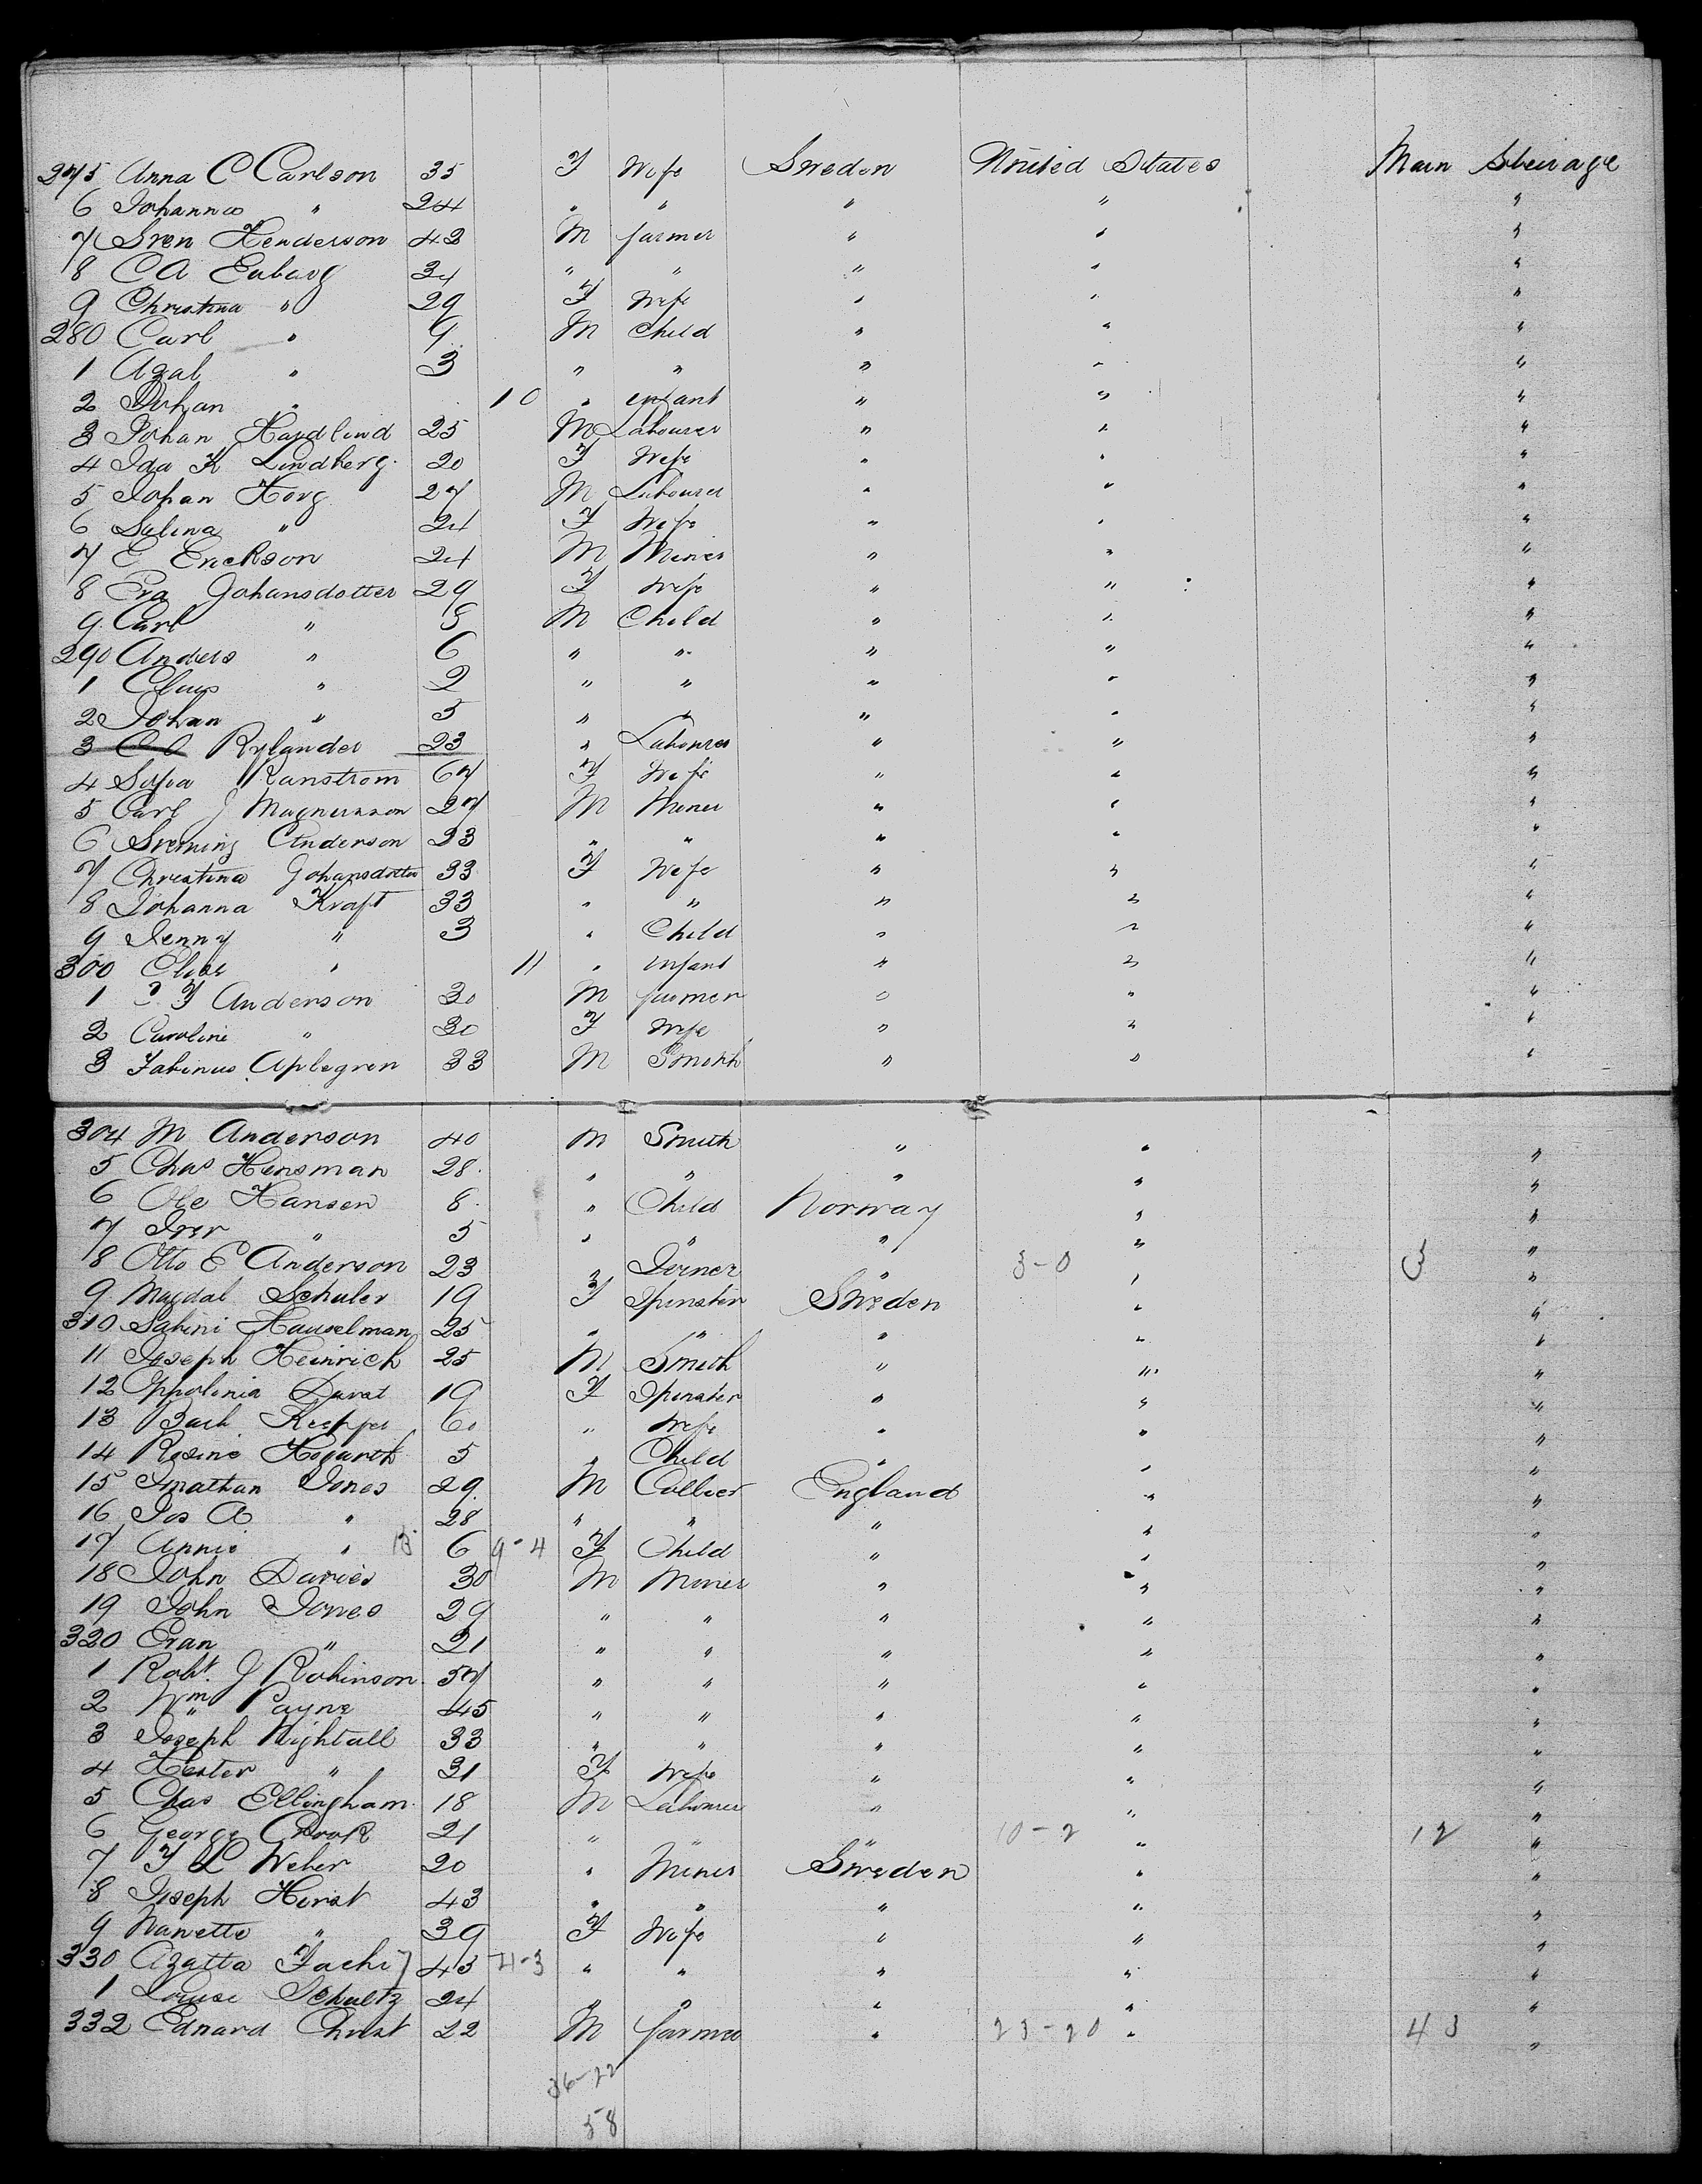 275 Anna C Carlson 35 F Wife Sweden United States Main Steirage
6 Johanna " 24 " " " " "
7 Sven Henderson 42 M farmer " " "
8 C A Enbarg 34 " " " " "
9 Christina " 29 F Wife " " "
280 Carl " 9 M Child " " "
1 Axal " 3 " " " " "
2 Johan " 10 " infant " " "
3 Johan Hardlind 25 M Labourer " " "
4 Ida K Lindberg 20 F Wife " " "
5 Johan Horg 27 M Labourer " " "
6 Salina " 24 F Wife " " "
7 E Erickson 24 M Miner " " "
8 Eva Johansdotter 29 F Wife " " "
9 Carl " 8 M Child " " "
290 Anders " 6 " " " " "
1 Claus " 2 " " " " "
2 Johan " 5 " " " " "
3 Rylander 23 " Labourer " " "
4 Sofia Ranstrom 67 F Wife " " "
5 Carl J Magnusson 27 M Miner " " "
6 Anderson 23 " " " " "
7 Christina Johansdotter 33 F Wife " " "
8 Johanna Kraft 33 " " " " "
9 Jenny " 3 " Child " " "
300 Elise " 11 " infant " " "
1 Anderson 30 M farmer " " "
2 Caroline " 30 F Wife " " "
3 Fabinus Aplegren 33 M Smith " " "
304 M Anderson 40 M Smith " " "
5 Chas Hensman 28 " " " " "
6 Ole Hansen 8 " Child Norway " "
7 Iver " 5 " " " " "
8 Otto E Anderson 23 " Joiner " 3-0 " 3 "
9 Magdal Schuler 19 F Spinster Sweden " "
310 Sabini Hauselman 25 " " " " "
11 Joseph Heinrich 25 M Smith " " "
12 Appolinia Durst 19 F Spinster " " "
13 Barb 60 " Wife " " "
14 Rosine Hogarth 5 " Child " " "
15 Jonathan Jones 29 M Collier England " "
16 Jos A " 28 " " " " "
17 Annie " 13 6 9-4 F Child " " "
18 John Davies 30 M Miner " " "
19 John Jones 29 " " " " "
320 Evan " 21 " " " " "
1 Robt J Robinson 57 " " " " "
2 Wm Payne 45 " " " " "
3 Joseph Wightall 33 " " " " "
4 Hester " 31 F Wife " " "
5 Chas Ellingham 18 M Labourer " " "
6 George Crook 21 " " " 10-2 " 12 "
7 F L Weber 20 " Miner Sweden " "
8 Joseph Hurst 43 " " " " "
9 Nanette " 39 F Wife " " "
330 Agatta Fachi 7 45 4-3 " " " " "
1 Louise Schultz 24 " " " " "
332 Edward Christ 22 M farmer " 23-20 " 43 "
36-22
58